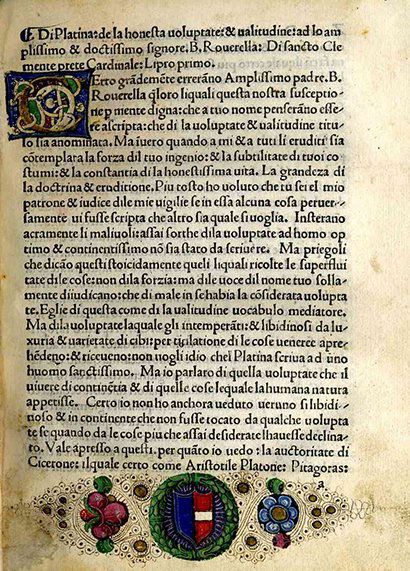 ❧ Di Platina: de la honesta uoluptate: & ualitudine: ad lo am
plissimo & doctissimo signore. B. Rouerella: Di sancto Cle
mente prete Cardinale: Lipro primo.
CErto grãdemẽte errerãno Amplissimo padre. B.
Rouerella q̃loro li quali questa nostra susceptio-
ne p mente digna: che a tuo nome penserãno esse-
re ascripta: che di la uoluptate & ualitudine titu
lo sia anominata. Ma iuero quando a mi & a tuti li eruditi sia
cõtemplara la forza dil tuo ingenio: & la subtilitate di tuoi co
stumi: & la constantia di la honestissima uita. La grandeza di
la doctrina & eruditione. Piu tosto ho uoluto che tu sei el mio
patrone & iudice di le mie uigilie se in essa alcuna cosa peruer-
samente ui fusse scripta che altro sia quale si uoglia. Insterano
acramente li maliuoli: assai sorthe di la uoluptate ad homo op
timo & continentissimo nõ sia stato da scriuere. Ma priegoli
che dicão questi stoicidamente queli li quali ricolte le superfluï
tate di le cose: non di la forzia: ma di le uoce dil nome tuo solla-
mente diiudicano: che di male in se habia la cõsiderata uolupta
te. Egli e di questa come di la ualitudine uocabulo mediatore.
Ma di la uoluptate la quale gli intemperãti: & libidinosi da lu-
xuria & uarietate di cibi: per titilatione di le cose ueneree apre-
hẽdeno: & riceueno: non uogli idio che l Platina scriua ad ũno
huomo sãctissimo. Ma io parlaro di quella uoluptate che il
uiuere di continẽtia & di quelle cose le quale la humana natura
appetisse. Certo io non ho anchora ueduto ueruno si libidi-
noso & in continente che non fusse tocato da qualche uolupta
te se quando da le cose piu che assai desiderate lhauesse declina-
to. Vale apresso a questi. per quãto io uedo: la auctoritate di
Cicerone: il quale certo come Aristotile Platone: Pitagoras:
a